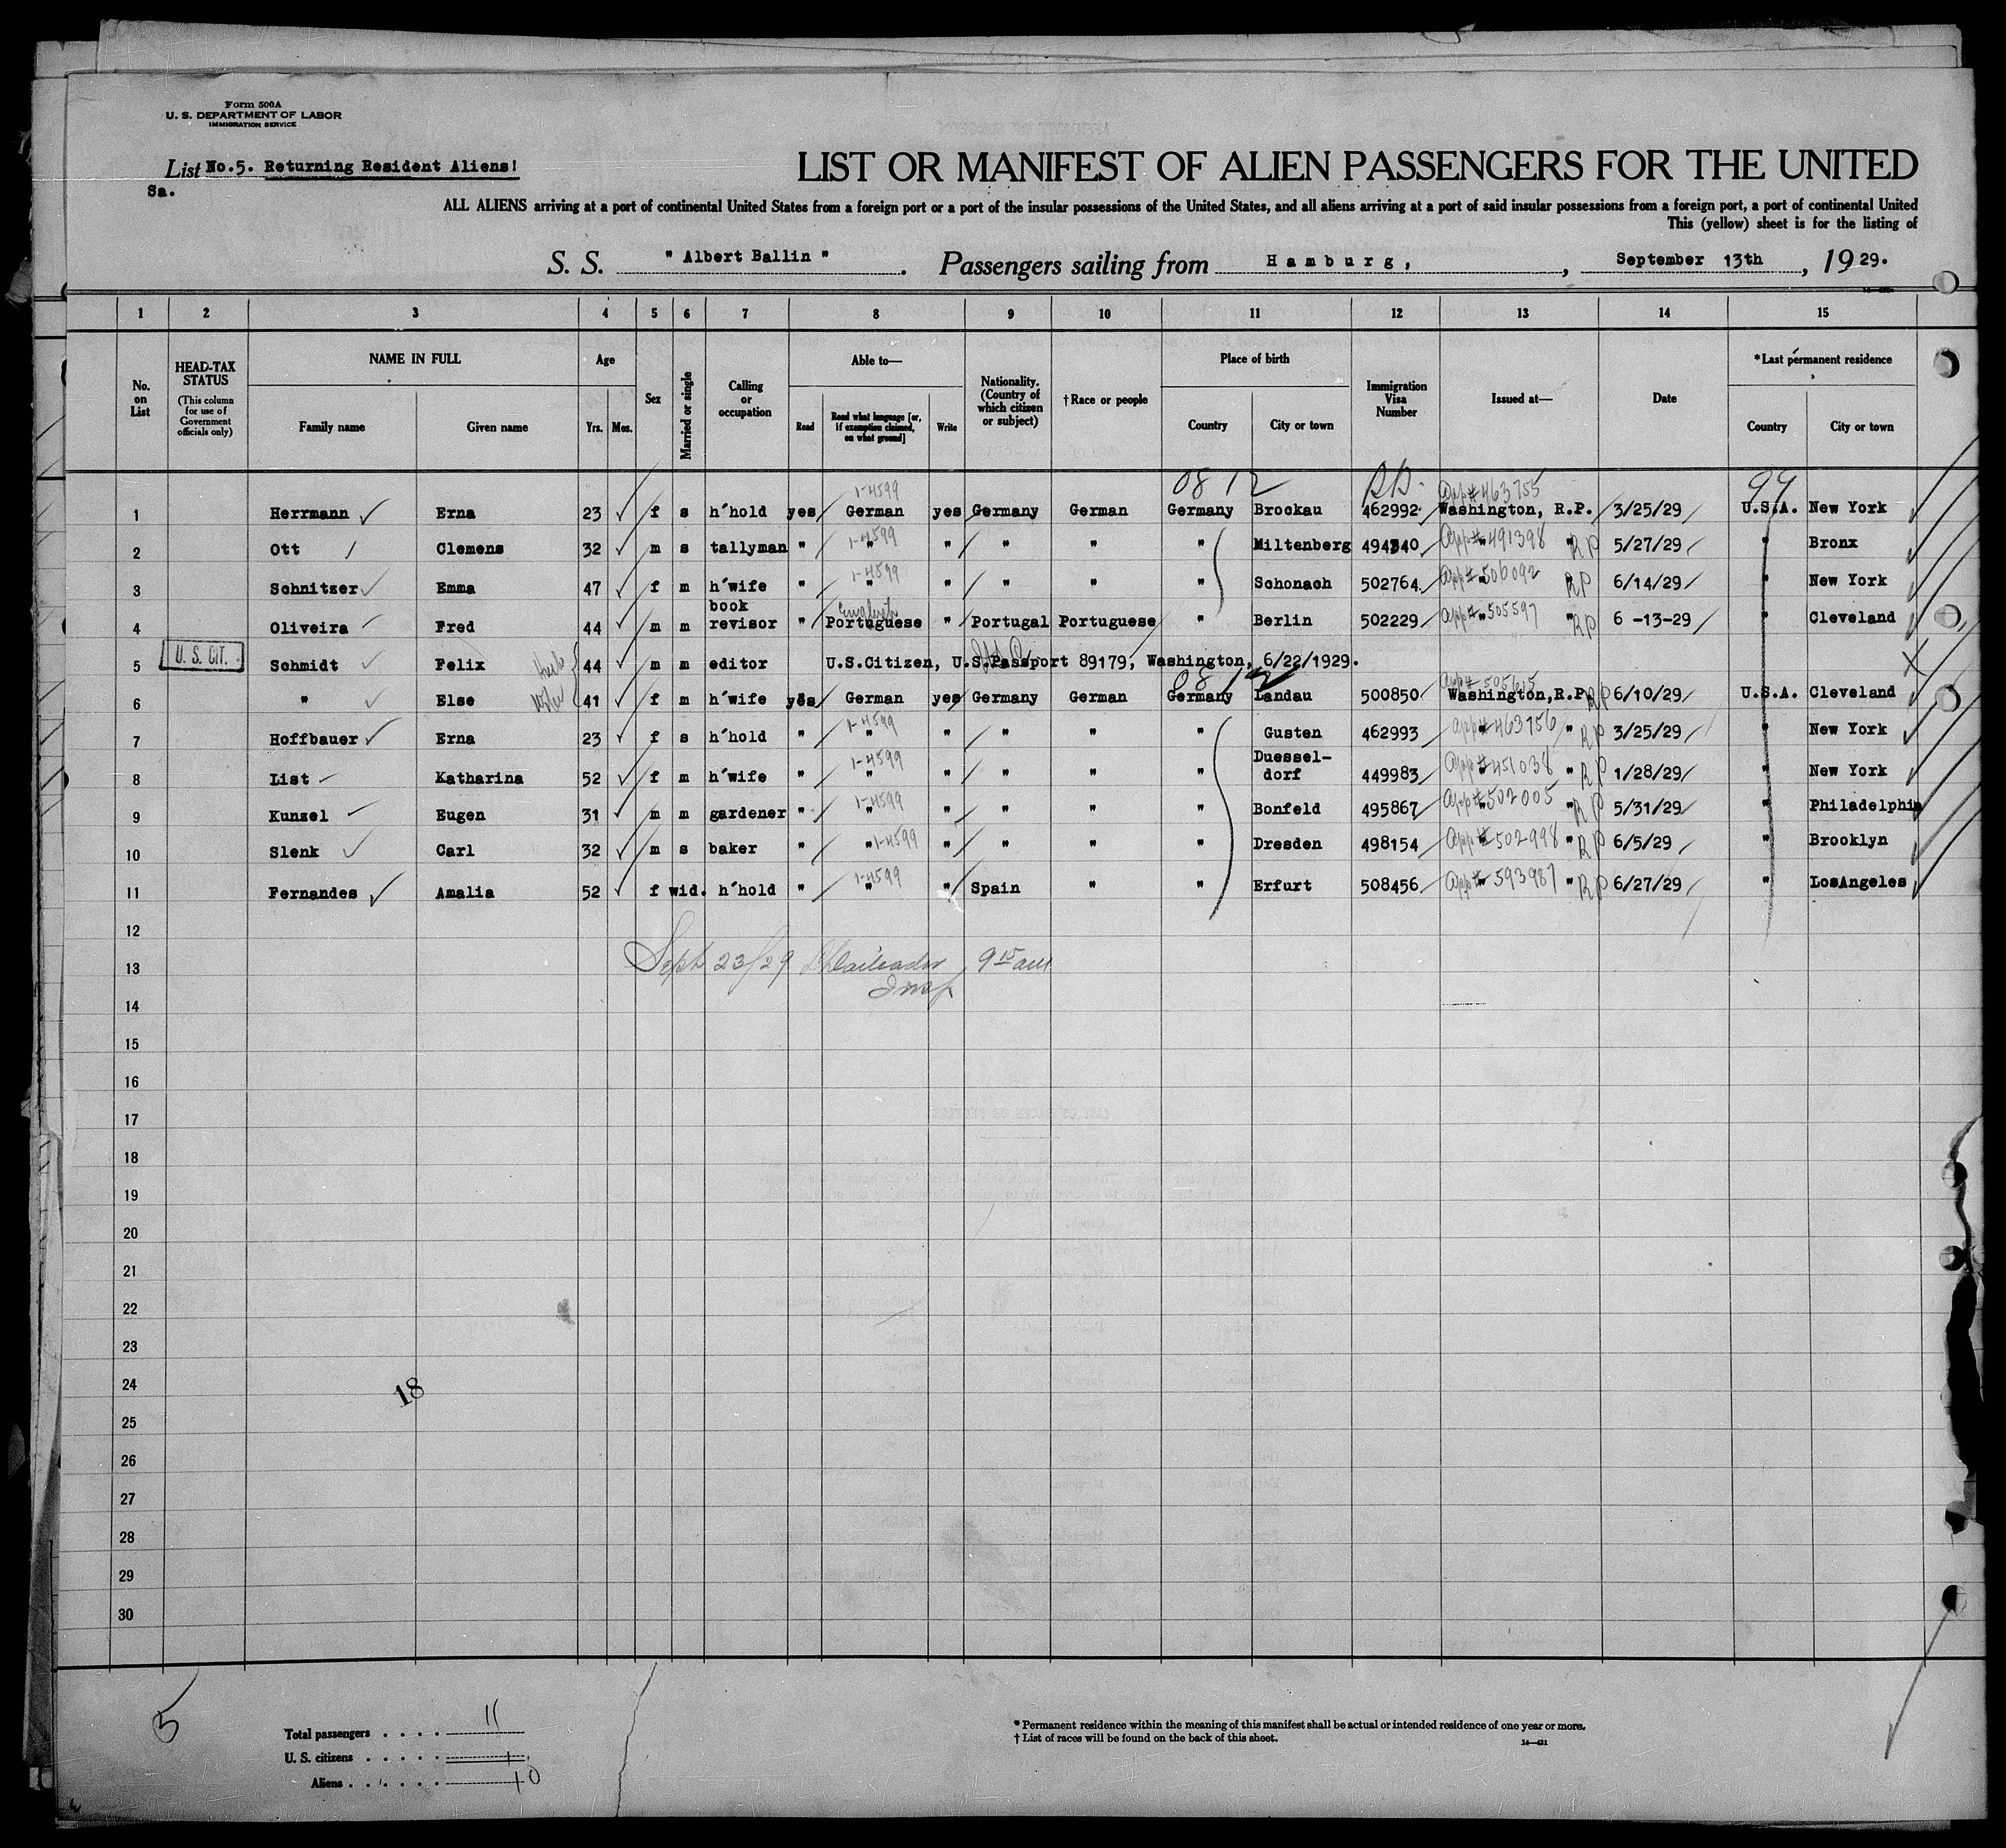 Form 500A
U. S. DEPARTMENT OF LABOR
IMMIGRATION SERVICE
List No.5. Returning Resident Aliens!
Sa.
LIST OR MANIFEST OF ALIEN PASSENGERS FOR THE UNITED
ALL ALIENS arriving at a port of continental United States from a foreign port or a port of the insular possessions of the United States, and all aliens arriving at a port of said insular possessions from a foreign port, a port of continental United
This (yellow) sheet is for the listing of
S. S. " Albert Ballin " . Passengers sailing from Hamburg, , September 13th , 1929.
1 2 3 4 5 6 7 8 9 10 11 12 13 14 15
No. on List
HEAD-TAX STATUS
(This column for use of Government officials only)
NAME IN FULL
Family name Given name
Age
Yrs. Mos.
Sex
Married or single
Calling or occupation
Able to—
Read
Read what language [or, if exemption claimed, on what ground]
Write
Nationality. (Country of which citizen or subject)
†Race or people
Place of birth
Country City or town
Immigration Visa Number
Issued at—
Date
*Last permanent residence
Country City or town
1-4599 08 12 App# 463755 99
1 Herrmann Erna 23 f s h'hold yes German yes Germany German Germany Brockau 462992 Washington, R.P. 3/25/29 U.S.A. New York
1-4599 App# 491398 RP
2 Ott Clemens 32 m s tallyman " " " " " " Miltenberg 494340 " 5/27/29 " Bronx
1-4599 App# 506092 RP
3 Schnitzer Emma 47 f m h'wife " " " " " " Schonach 502764 " 6/14/29 " New York
English App# 505597 RP
4 Oliveira Fred 44 m m book revisor " Portuguese " Portugal Portuguese " Berlin 502229 " 6 -13-29 " Cleveland
U. S. CIT.
5 Schmidt Felix 44 m m editor U.S.Citizen, U.S.Passport 89179, Washington, 6/22/1929.
08 12 App# 505615
6 " Else 41 f m h'wife yes German yes Germany German Germany Landau 500850 Washington,R.P. RP 6/10/29 U.S.A. Cleveland
1-4599 App# 463756 RP
7 Hoffbauer Erna 23 f s h'hold " " " " " " Gusten 462993 " 3/25/29 " New York
1-4599 App# 451038 RP
8 List Katharina 52 f m h'wife " " " " " " Duessel-dorf 449983 " 1/28/29 " New York
1-4599 App# 502005 RP
9 Kunzel Eugen 31 m m gardener " " " " " " Bonfeld 495867 " 5/31/29 " Philadelphia
1-4599 App# 502998 RP
10 Slenk Carl 32 m s baker " " " " " " Dresden 498154 " 6/5/29 " Brooklyn
1-4599 App# 593987 RP
11 Fernandes Amalia 52 f wid. h'hold " " " Spain " " Erfurt 508456 " 6/27/29 " LosAngeles
12
13 Sept 23/29 9 15 am
Insp
14
15
16
17
18
19
20
21
22
23
24
18
25
26
27
28
29
30
5
Total passengers . . . . 11
U. S. citizens . . . . . 1
Aliens . . . . . . 10
* Permanent residence within the meaning of this manifest shall be actual or intended residence of one year or more.
† List of races will be found on the back of this sheet.
14—421